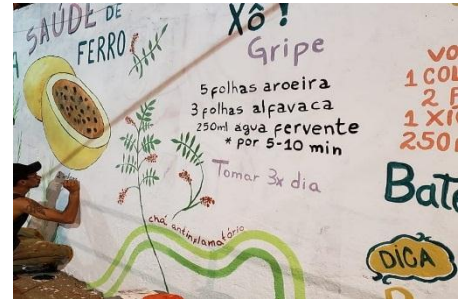 SAÚDE DE
FERRO
Xô!
Gripe
5 folhas aroeira
3 folhas alfavaca
250ml água fervente
* por 5-10 min
Tomar 3x dia
chá antinflamatório
VO
1 COL
2 F
1 XÍ
250
Bat
DICA